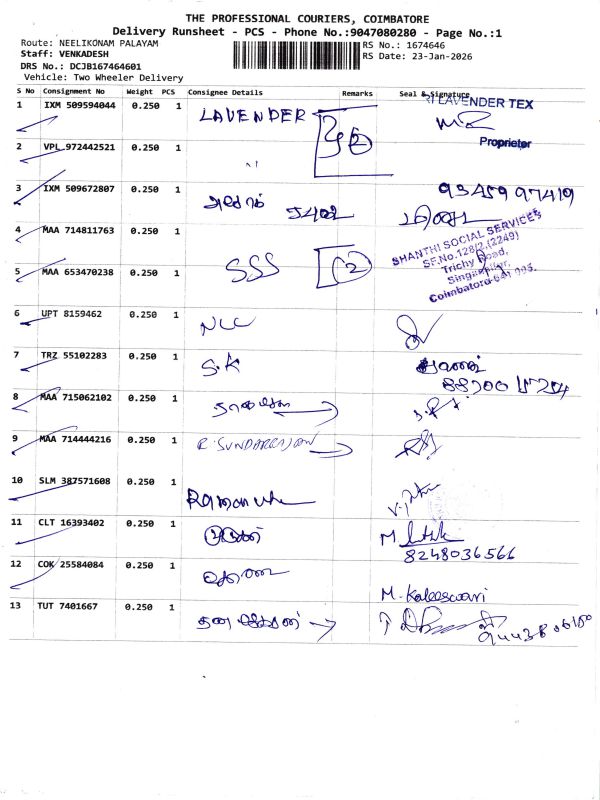 THE PROFESSIONAL COURIERS, COIMBATORE
Delivery Runsheet - PCS - Phone No.:9047080280 - Page No.:1
Route: NEELIKONAM PALAYAM
RS No.: 1674646
Staff: VENKADESH
RS Date: 23-Jan-2026
DRS No.: DCJB167464601
Vehicle: Two Wheeler Delivery
S No Consignment No Weight PCS Consignee Details Remarks Seal & Signature
1 IXM 509594044 0.250 1 LAVENDER LAVENDER TEX
Proprietor
2 VPL 972442521 0.250 1 2
3 IXM 509672807 0.250 1 93459 97419
4 MAA 714811763 0.250 1
SHANTHI SOCIAL SERVICES
SF.No.128/2,(2249)
Trichy Road,
Coimbatore-641 005.
5 MAA 653470238 0.250 1 SSS 2
6 UPT 8159462 0.250 1 NCC
7 TRZ 55102283 0.250 1 S.K
8 MAA 715062102 0.250 1
9 MAA 714444216 0.250 1 R. SUNDARRAJAN
10 SLM 387571608 0.250 1
11 CLT 16393402 0.250 1
8248036566
12 COK 25584084 0.250 1 M. Kaleeswari
13 TUT 7401667 0.250 1